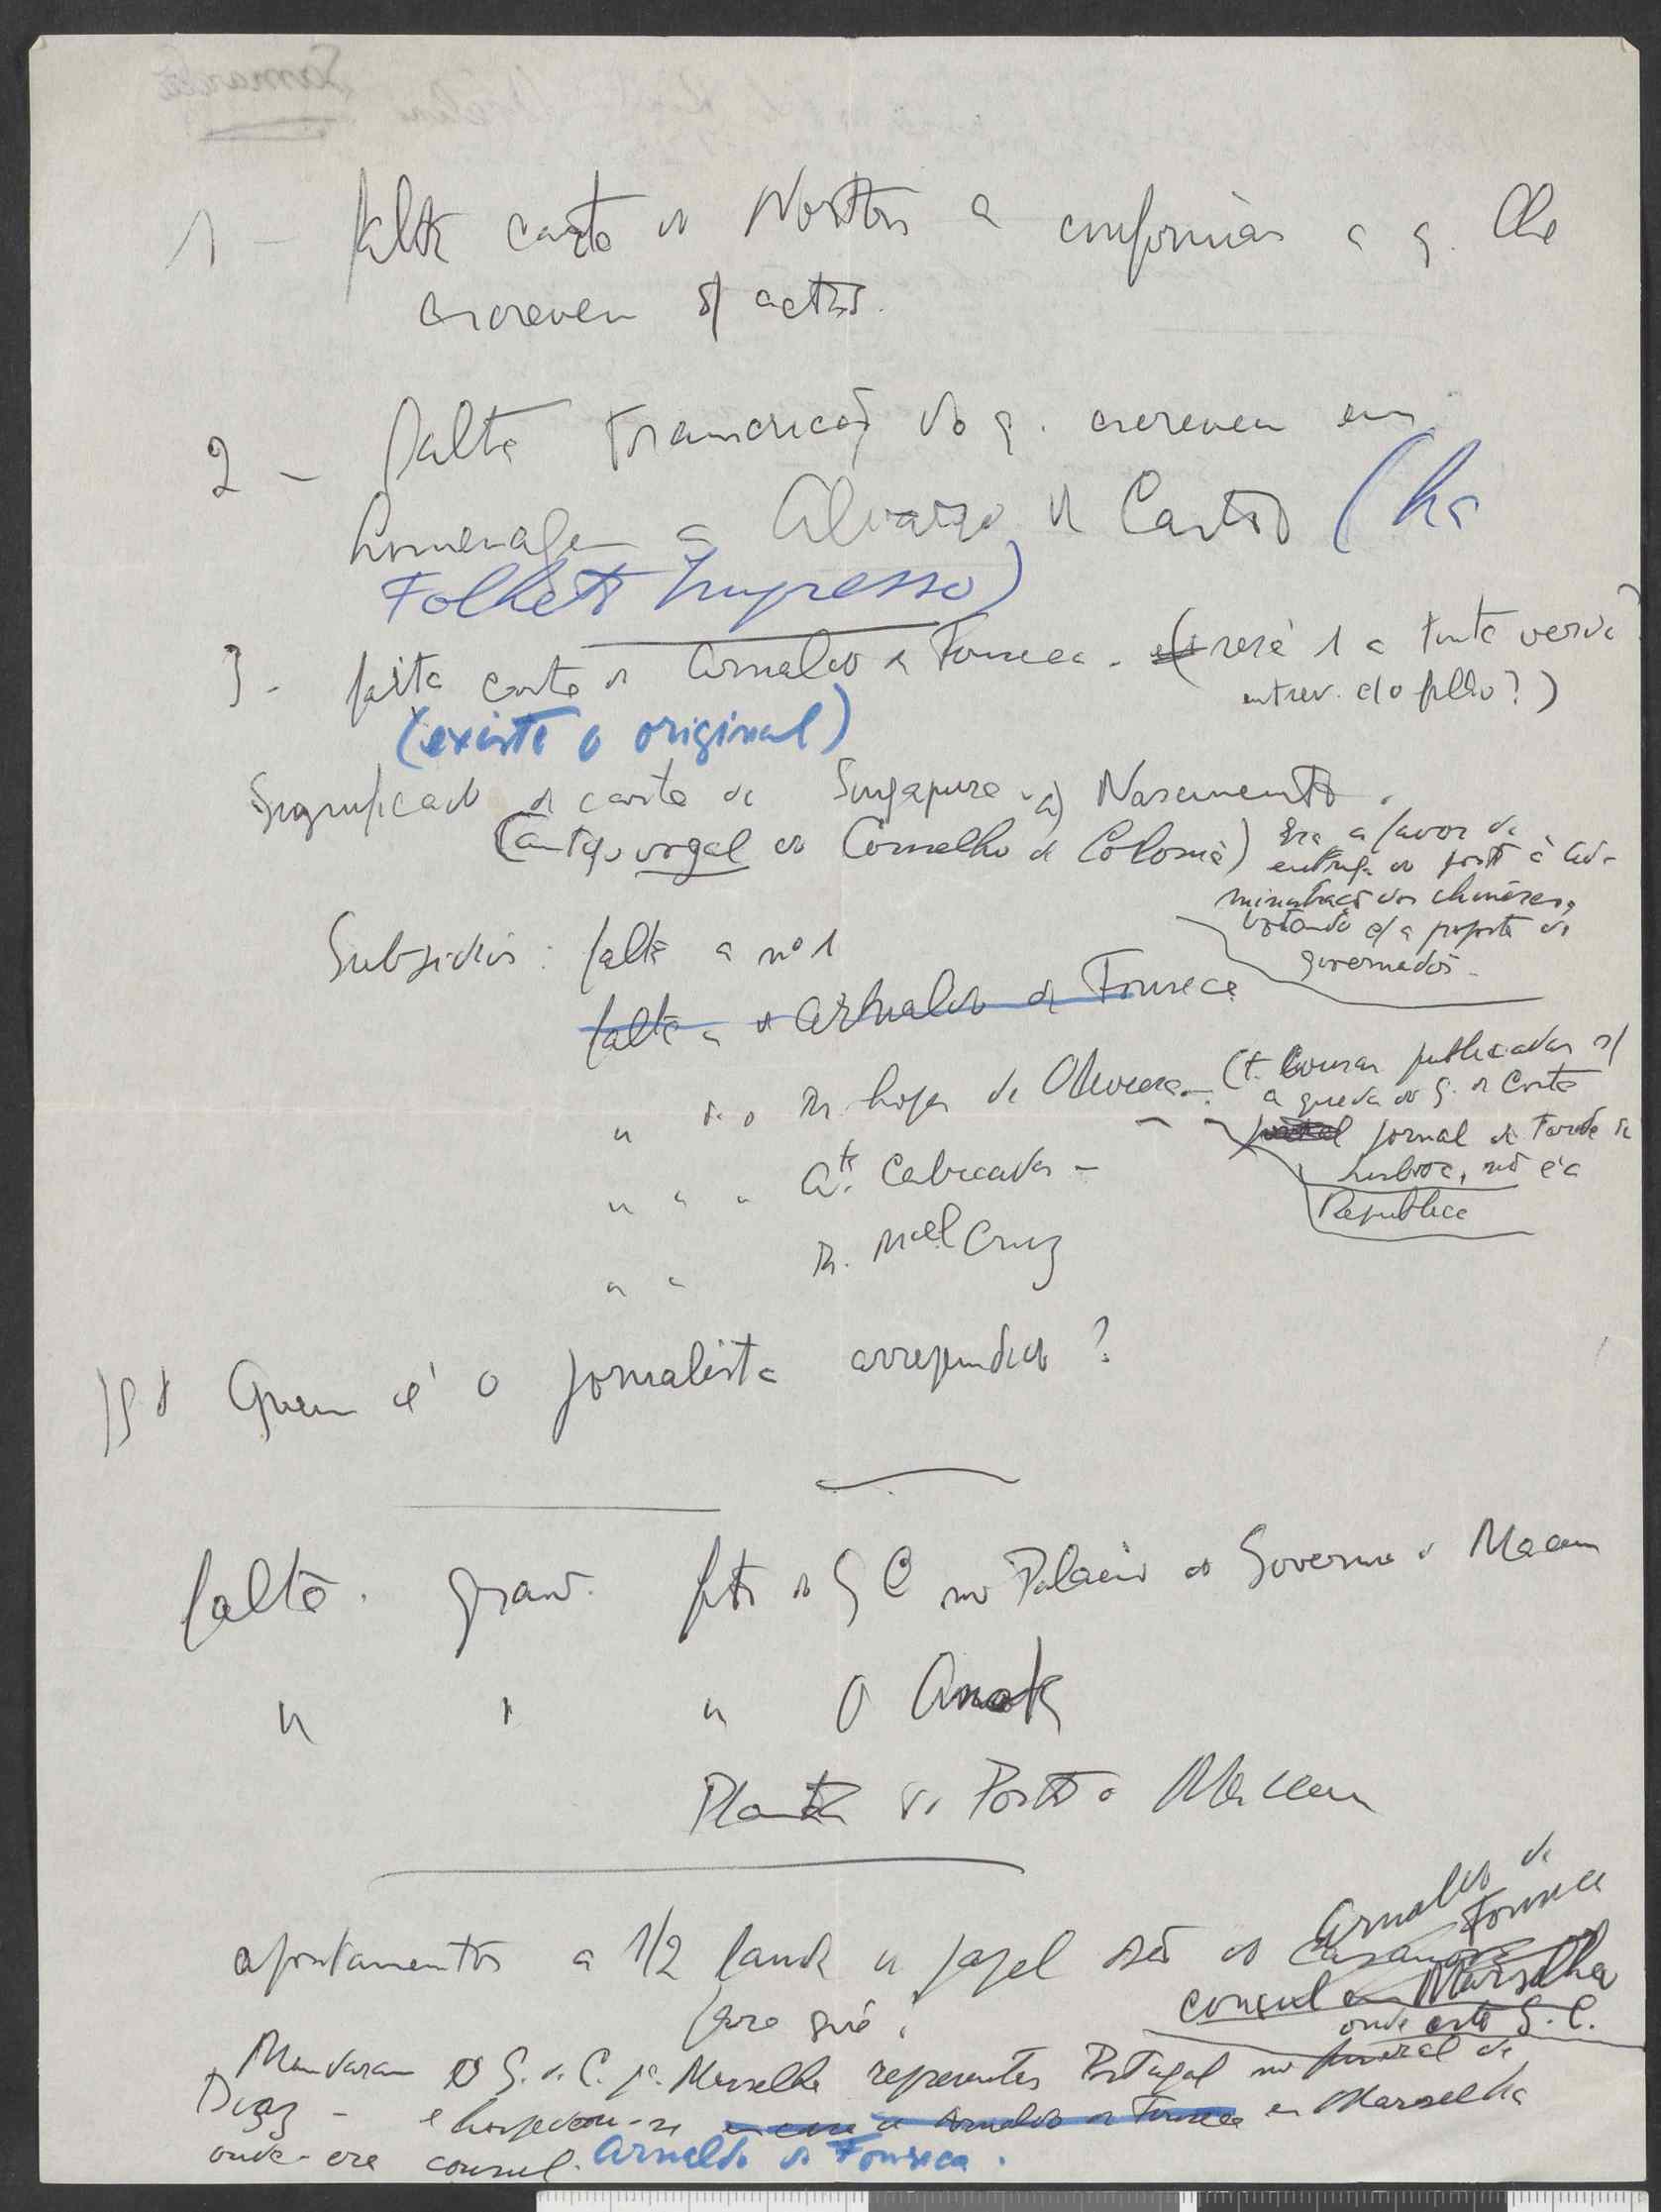 1 - falta carta de Norton a confirmar a q. lhe
escreveu s/ actos.
2 - falta transcrição do q. escreveu em
homenagem a Alvaro de Castro (há
Folheto Impresso)
3 - falta carta de Arnaldo de Fonseca. (será 1 a tinta verde
entrev. c/ o filho?)
(existe o original)
Significado da carta de Singapura a) Nascimento.
(antigo vogal do Conselho de Colonia) Era a favor da
entrega do porto à Ad-
ministração dos chineses,
votando c/ a proposta do
governador.
Subsidios: falta a nº 1
falta a de Arnaldo de Fonseca
" de o Dr. Lopes de Oliveira - (t. cousas publicadas s/
a queda do G. da Costa
jornal da Tarde de
Lisboa, não é a
Republica
" " " Cabeçadas -
" " Dr. Mel Cruz
Quem é o jornalista arrependido?
falta. grav. foto do G C no Palacio do Governo de Macau
" " " O
Planta do Porto de Macau
apontamentos a 1/2 de papel são do Arnaldo de
Fonseca
consul em Marselha
onde está G. C.
para quê?
Mandaram o G. da C. pª Marselha representar Portugal no funeral de
Diaz - e hospedou-se em casa de Arnaldo de Fonseca em Marselha
onde era consul. Arnaldo de Fonseca.